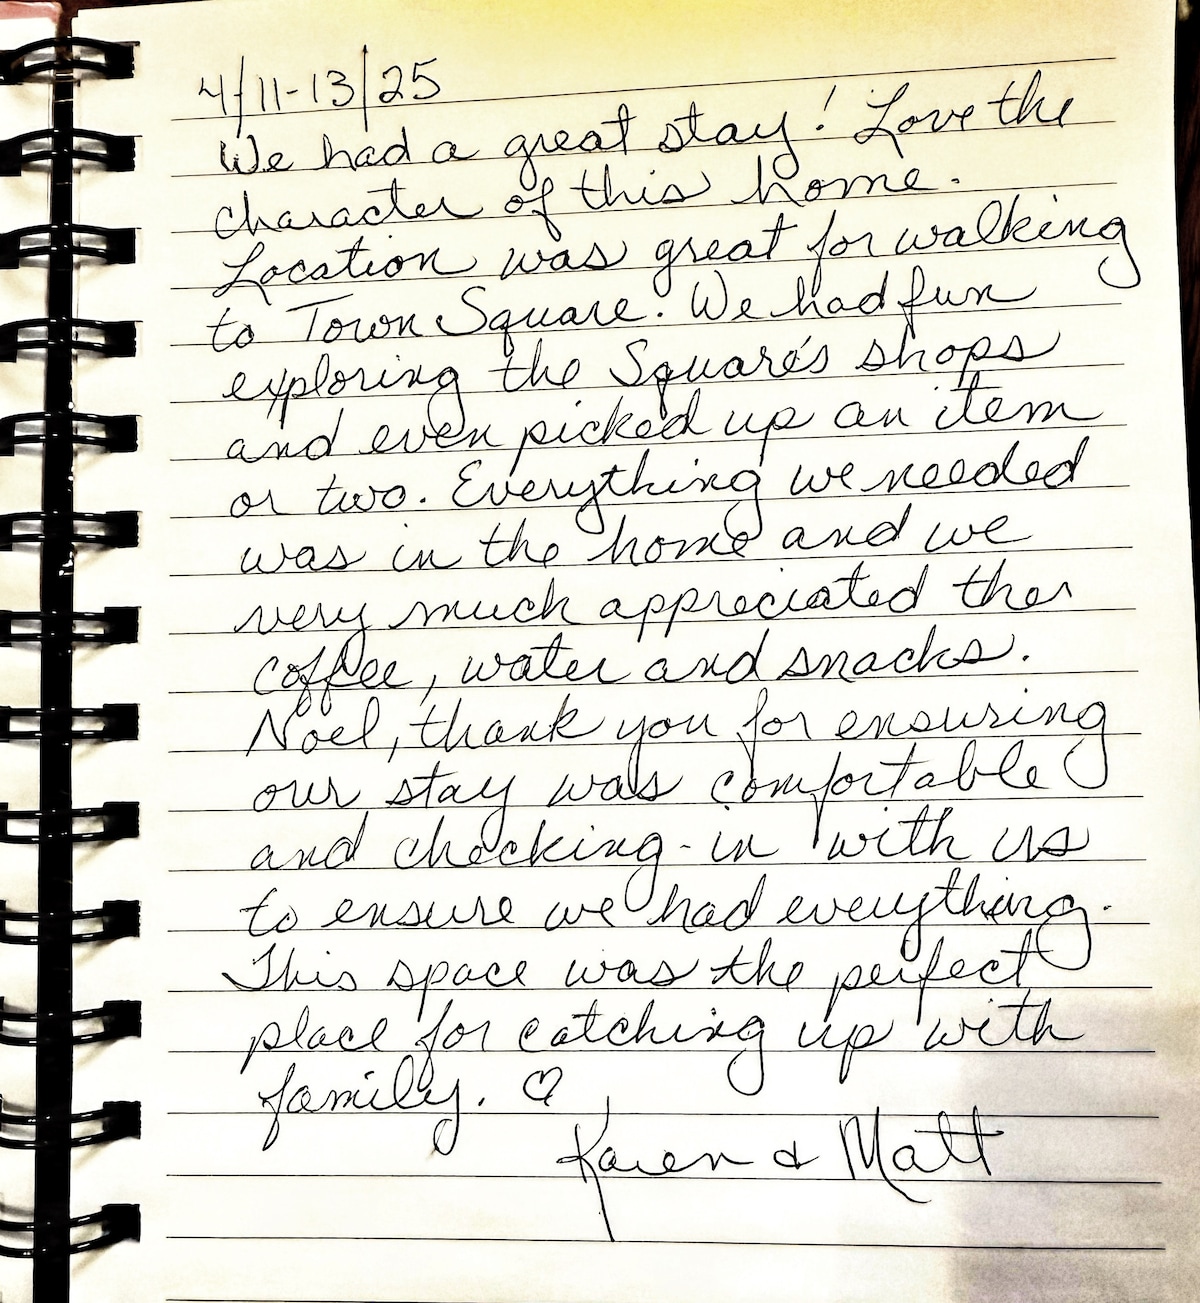 4/11-13/25
We had a great stay! Love the
character of this home.
Location was great for walking
to Town Square. We had fun
exploring the Square's shops
and even picked up an item
or two. Everything we needed
was in the home and we
very much appreciated the
coffee, water and snacks.
Noel, thank you for ensuring
our stay was comfortable
and checking-in with us
to ensure we had everything.
This space was the perfect
place for catching up with
family. ♡
Karen & Matt